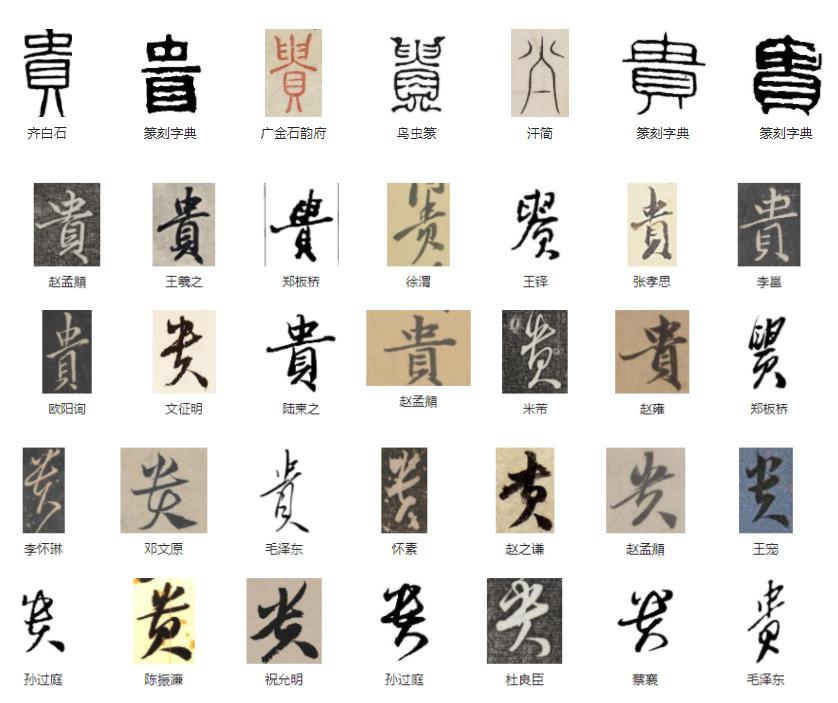 貴 貴 貴 貴 貴 貴 貴
齐白石 篆刻字典 广金石韵府 鸟虫篆 汗简 篆刻字典 篆刻字典
貴 貴 貴 贵 貴 貴 貴
赵孟頫 王羲之 郑板桥 徐渭 王铎 张孝思 李邕
貴 贵 貴 貴 貴 貴 貴
欧阳询 文征明 陆柬之 赵孟頫 米芾 赵雍 郑板桥
贵 贵 貴 贵 贵 贵 贵
李怀琳 邓文原 毛泽东 怀素 赵之谦 赵孟頫 王宠
贵 贵 贵 贵 贵 贵 貴
孙过庭 陈振濂 祝允明 孙过庭 杜良臣 蔡襄 毛泽东